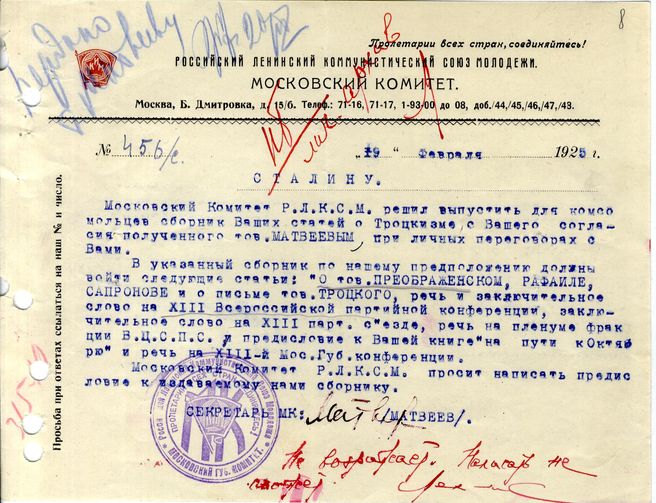 8
Пролетарии всех стран, соединяйтесь!
РОССИЙСКИЙ ЛЕНИНСКИЙ КОММУНИСТИЧЕСКИЙ СОЮЗ МОЛОДЕЖИ.
МОСКОВСКИЙ КОМИТЕТ.
Москва, Б. Дмитровка, д. 15/6. Телеф.: 71-16, 71-17, 1-93-00 до 08, доб./44,/45,/46,/47,/43.
№ 456/с.
„19 " февраля 1925 г.
СТАЛИНУ.
Московский Комитет Р.Л.К.С.М. решил выпустить для комсо
мольцев сборник Ваших статей о Троцкизме, с Вашего согла-
сия полученного тов. МАТВЕЕВЫМ, при личных переговорах с
Вами.
В указанный сборник по нашему предположению должны
войти следующие статьи: "О тов. ПРЕОБРАЖЕНСКОМ, РАФАИЛЕ,
САПРОНОВЕ и о письме тов. ТРОЦКОГО, речь и заключительное
слово на XIII Всероссийской партийной конференции, заклю-
чительное слово на XIII парт. с"езде, речь на пленуме фрак
ции В.Ц.С.П.С. и предисловие к Вашей книге "на пути к Октяб
рю" и речь на XIII-й Мос.Губ.конференции.
Московский Комитет Р.Л.К.С.М. просит написать предис
ловие к издаваемому нами сборнику.
СЕКРЕТАРЬ МК: /МАТВЕЕВ/.
Не возражает. Писать не
может
Просьба при ответах ссылаться на наш № и число.
МОСКОВСКИЙ ГУБ. КОМИТЕТ